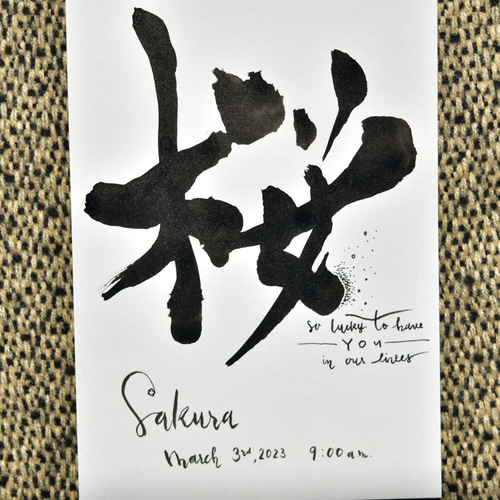 桜
so lucky to have
YOU
in our lives
Sakura
March 3rd, 2023 9:00 a.m.